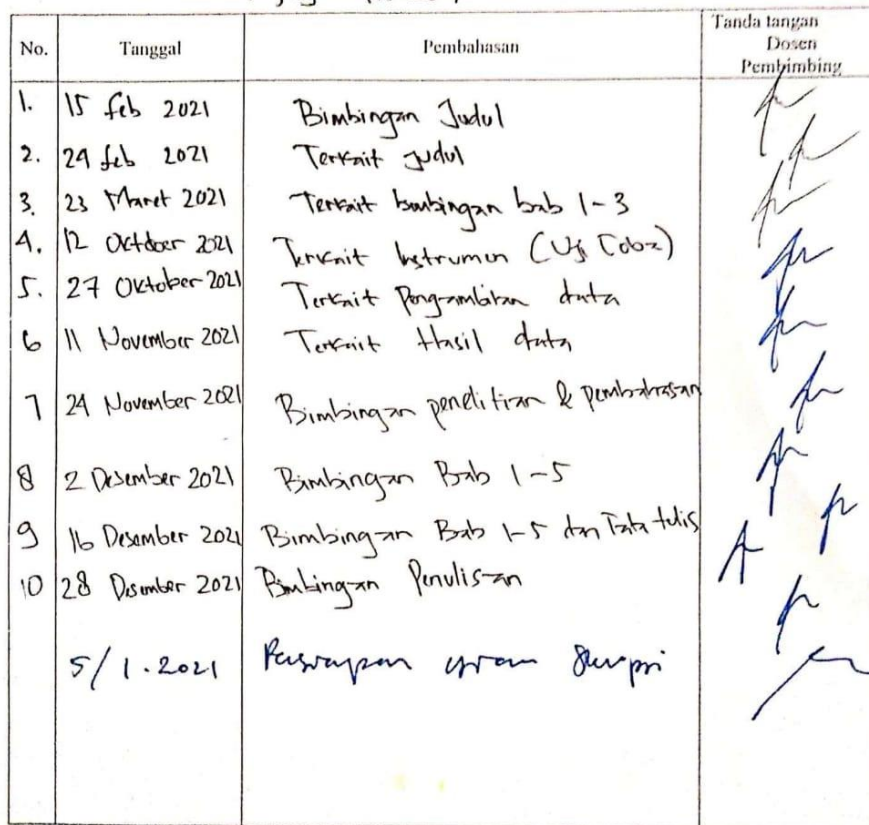 No. Tanggal Pembahasan Tanda tangan Dosen Pembimbing
1. 15 feb 2021 Bimbingan Judul
2. 24 feb 2021 Terkait judul
3. 23 Maret 2021 Terkait bimbingan bab 1-3
4. 12 Oktober 2021 Terkait Instrumen (Uji Coba)
5. 27 Oktober 2021 Terkait Pengambilan data
6 11 November 2021 Terkait Hasil data
7 24 November 2021 Bimbingan penelitian & pembahasan
8 2 Desember 2021 Bimbingan Bab 1-5
9 16 Desember 2021 Bimbingan Bab 1-5 dan Tata tulis
10 28 Desember 2021 Bimbingan Penulisan
5/1.2021